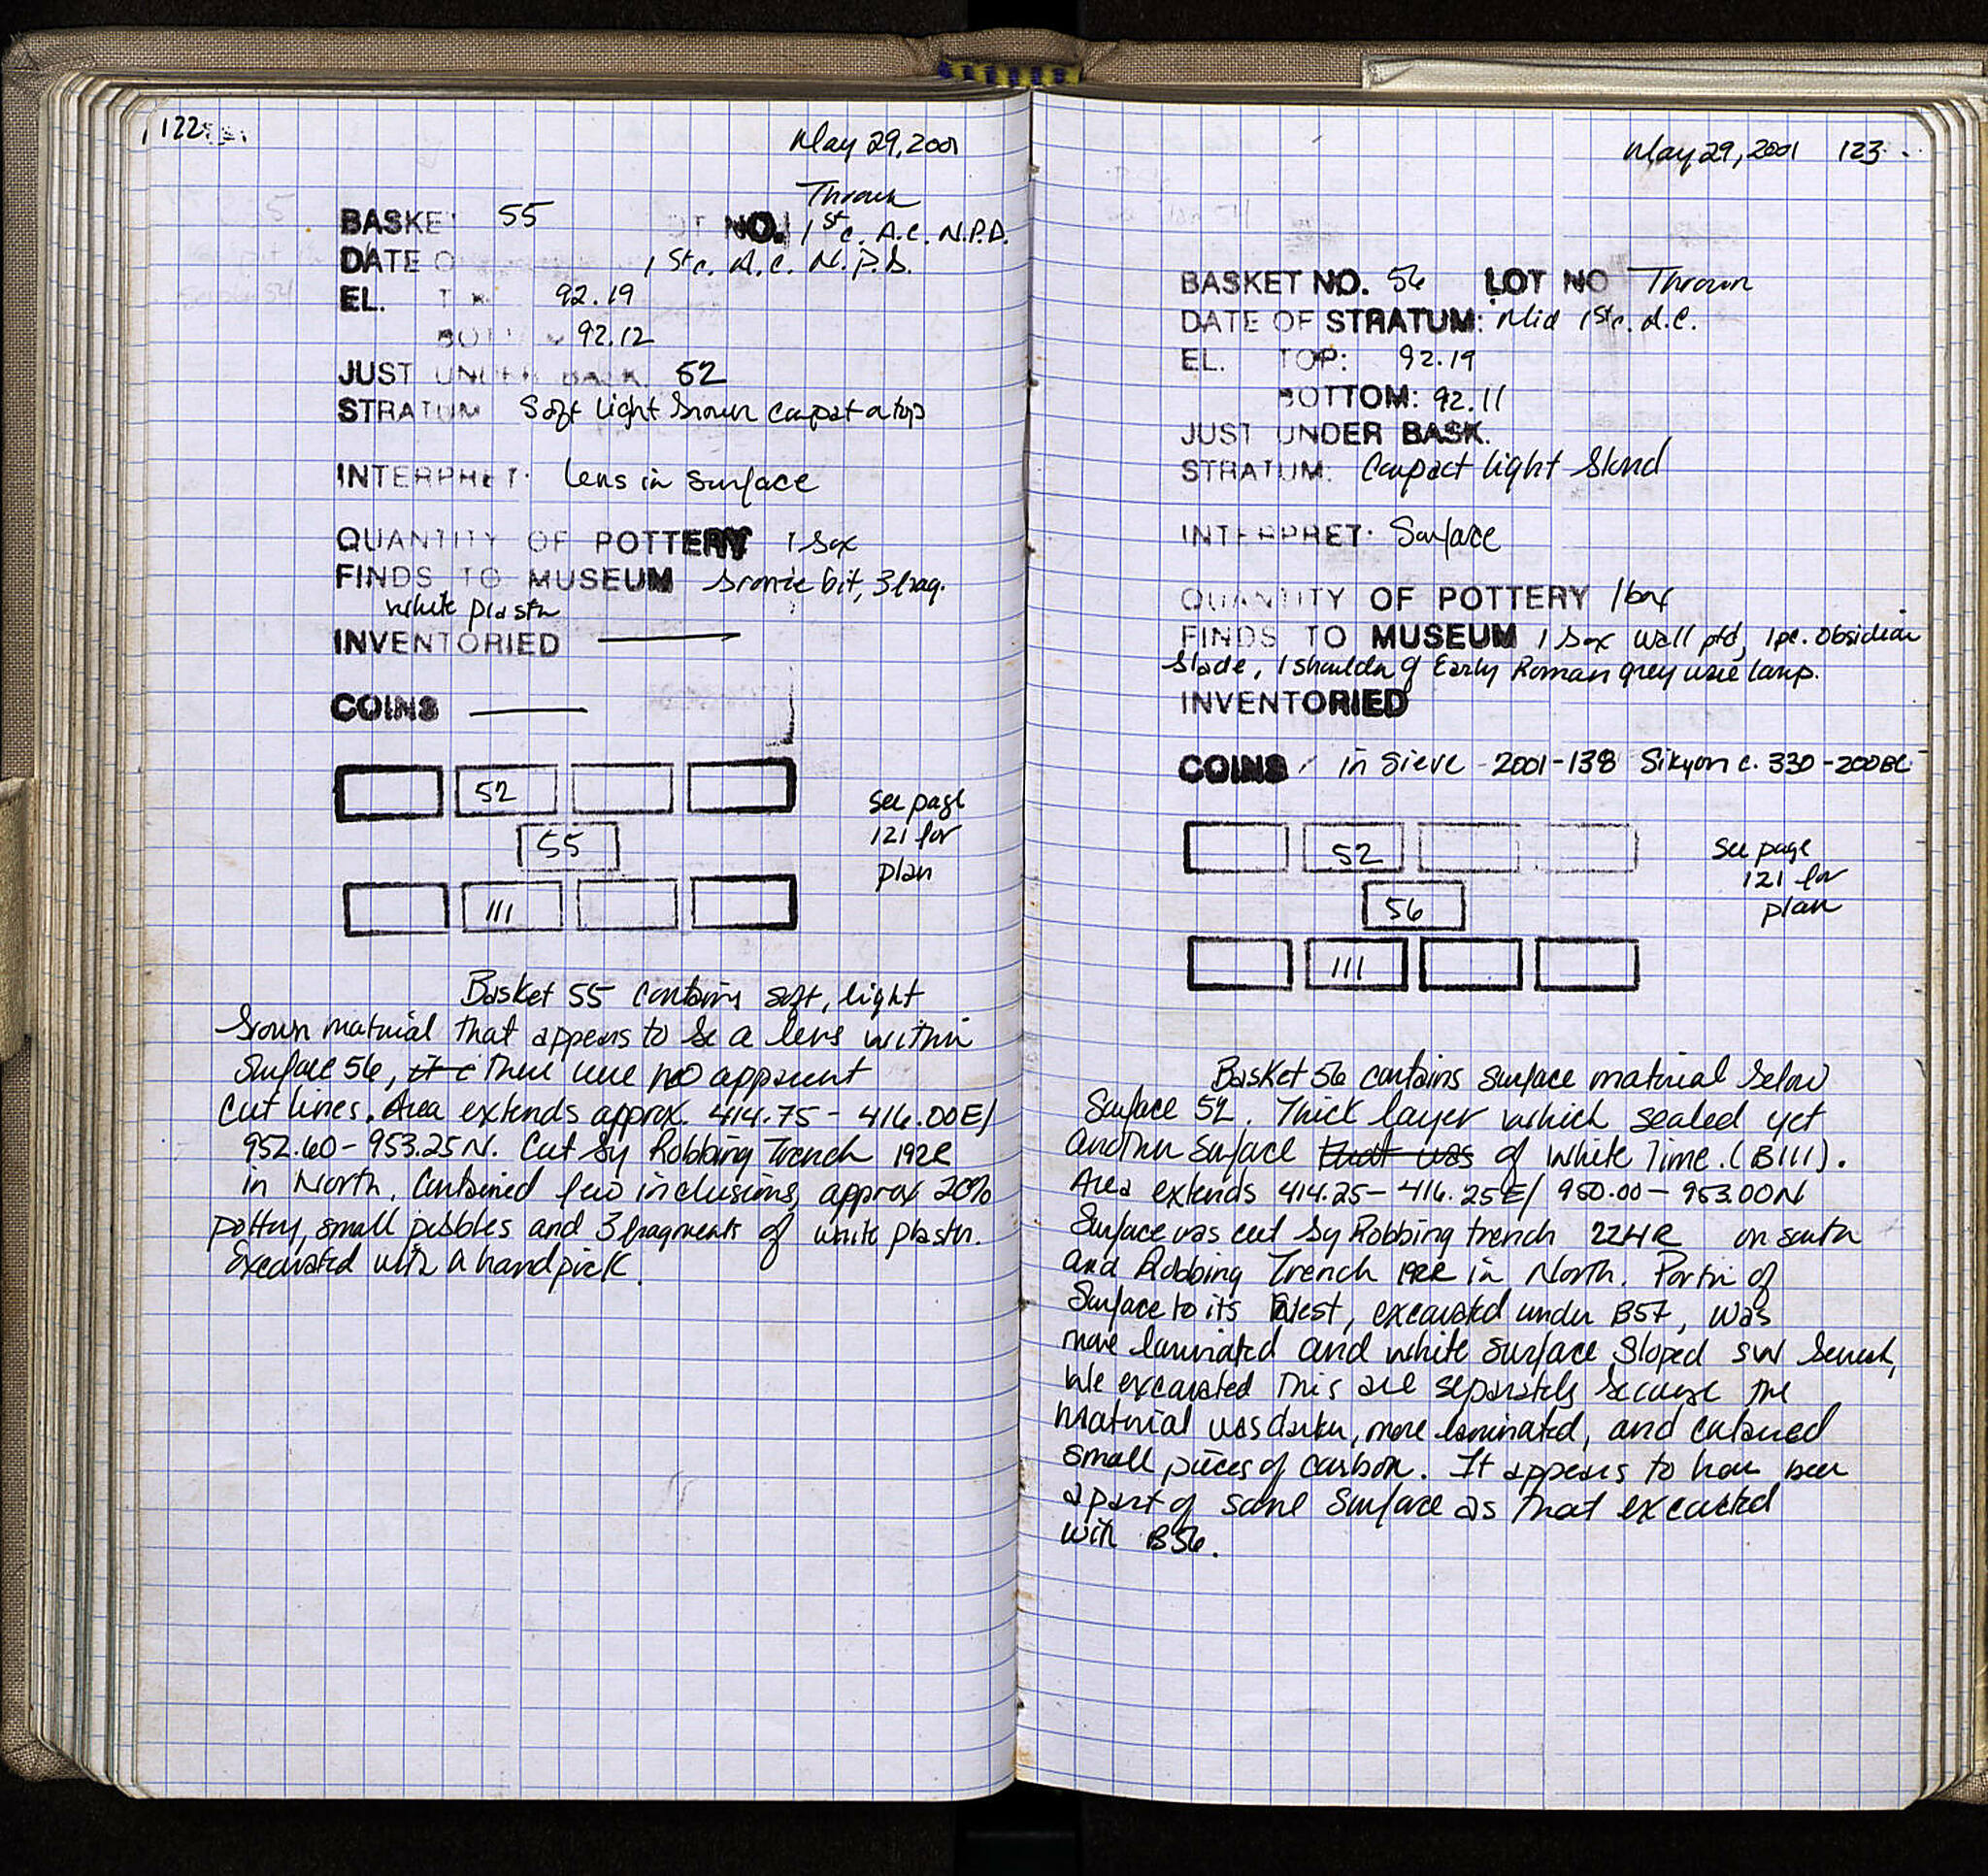 122
May 29, 2001
Thrown
BASKET 55 LOT NO. 1st c. A.C. N.P.D.
DATE O 1st c. A.C. N.P.D.
EL. TOP 92.19
BOTTOM 92.12
JUST UNDER BASK. 52
STRATUM Soft light brown compact atop
INTERPRET. Lens in Surface
QUANTITY OF POTTERY 1 box
FINDS TO MUSEUM bronze bit, 3 frag.
white plaster
INVENTORIED —
COINS —
52
55
111
see page
121 for
plan
Basket 55 contains soft, light
brown material that appears to be a lens within
Surface 56, it c There were no apparent
cut lines. Area extends approx. 414.75 - 416.00E/
952.60 - 953.25 N. Cut by Robbing Trench 192R
in North. Contained few inclusions, approx 20%
pottery, small pebbles and 3 fragments of white plaster.
Excavated with a handpick.
May 29, 2001 123
BASKET NO. 56 LOT NO Thrown
DATE OF STRATUM: Mid 1st c. A.C.
EL. TOP: 92.19
BOTTOM: 92.11
JUST UNDER BASK.
STRATUM: Compact light
INTERPRET. Surface
QUANTITY OF POTTERY 1 box
FINDS TO MUSEUM 1 box wall ptd, 1 pc. obsidian
blade, 1 shoulder of Early Roman grey ware lamp.
INVENTORIED
COINS in Sieve - 2001-138 Sikyon c. 330-200BC
52
56
111
see page
121 for
plan
Basket 56 contains surface material below
Surface 52. Thick layer which sealed yet
another surface that was of white lime. (B111).
Area extends 414.25 - 416.25E/ 950.00 - 953.00N
Surface was cut by Robbing trench 224R on south
and Robbing Trench 192R in North. Portin of
Surface to its West, excavated under B57, was
more laminated and white surface sloped SW beneath,
We excavated this are separately because the
material was darker, more laminated, and contained
small pieces of carbon. It appears to have been
a part of same surface as that excavated
with B56.